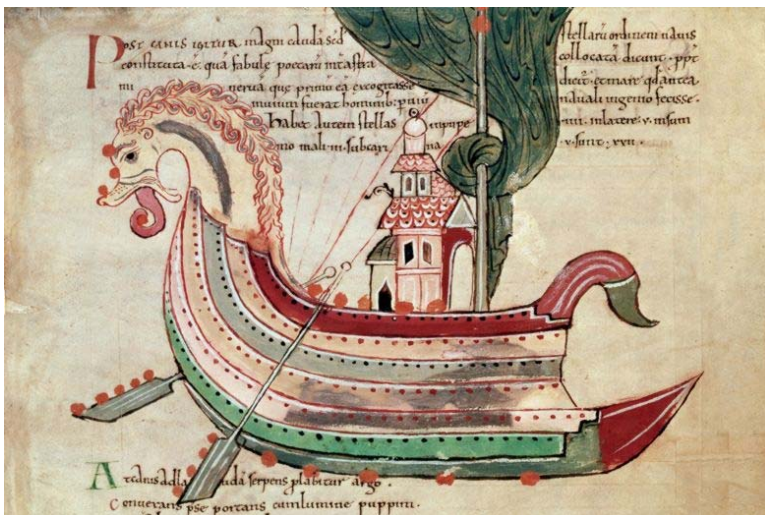 Post canis igitur magni caudā sed stellarū ordinem nauis
constituta ē quā fabule portam int astra collocatā dicunt ppt
mi nerua que primū eā excogitasse dicit et mare qd antea
inuium fuerat hominib; nauali ingenio fecisse
Habet autem stellas in puppe iiii in latere v in sum
mo mali iii sub cari na v sunt xxii
At canis ad caudā serpens plabitur argo
Conuersam pse portans cumlumine puppim